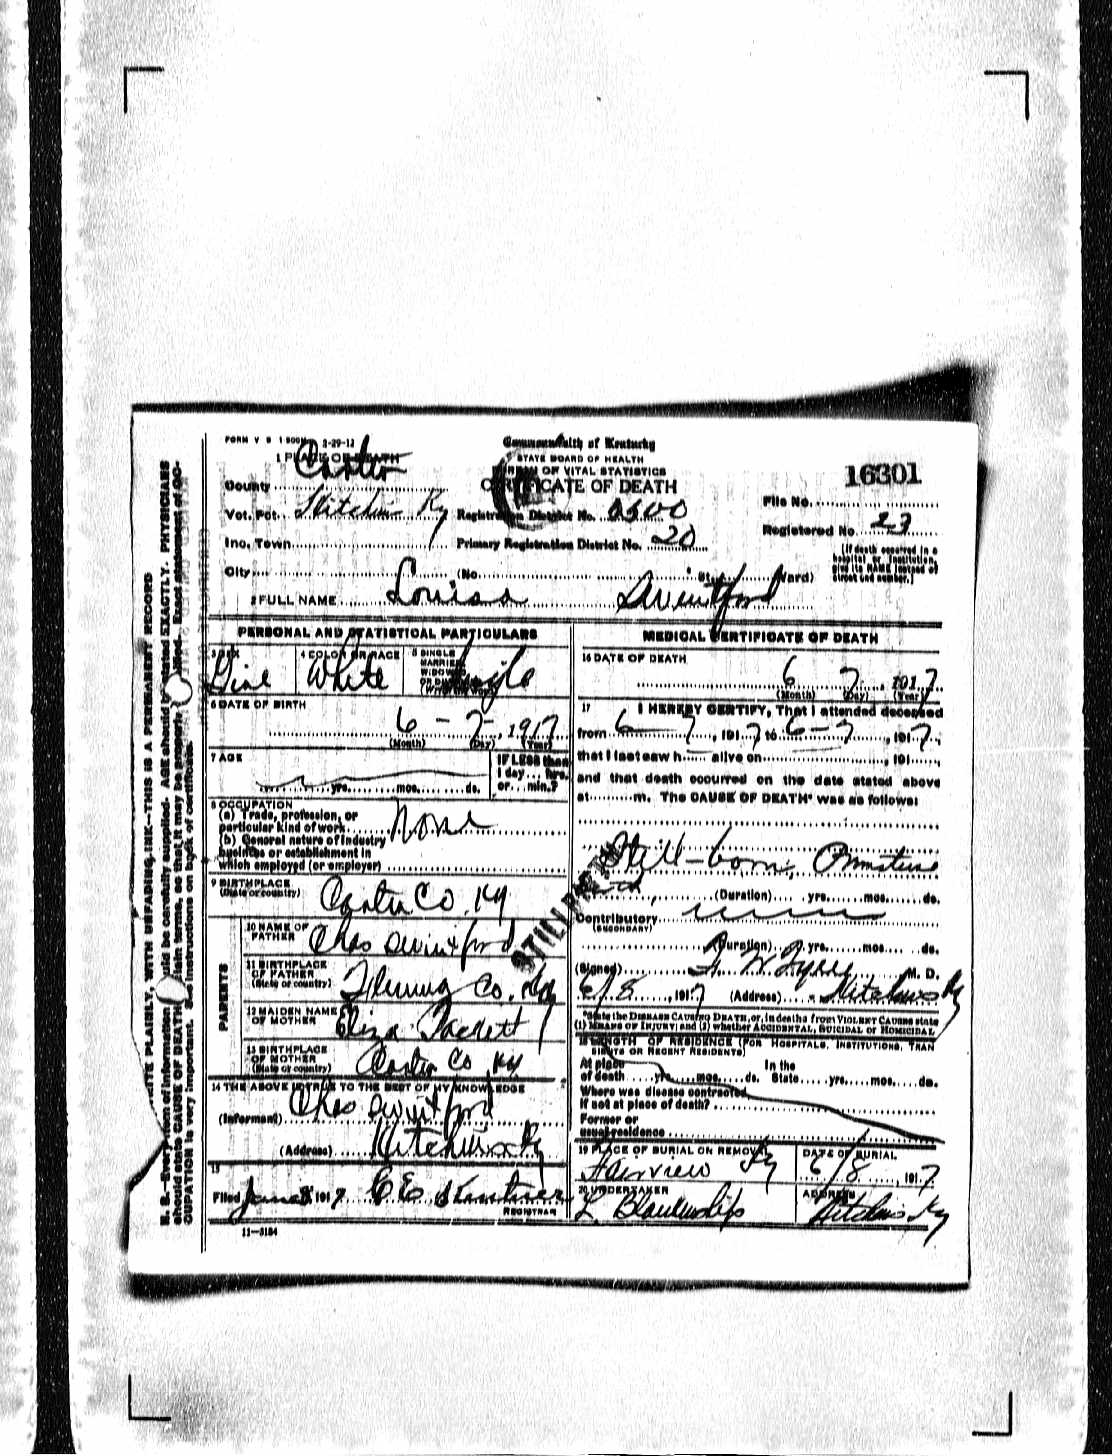 FORM V S 1 500M 2-29-12
Commonwealth of Kentucky
1 PLACE OF DEATH
STATE BOARD OF HEALTH
BUREAU OF VITAL STATISTICS
CERTIFICATE OF DEATH
16301
County Carter
File No.
Vot. Pct. Hitchins Ky Registration District No.
Registered No. 23
Inc. Town Primary Registration District No. 20
(If death occurred in a hospital or institution, give its NAME instead of street and number.)
City (No. St., Ward)
2 FULL NAME Louisa
PERSONAL AND STATISTICAL PARTICULARS
3 SEX 4 COLOR OR RACE White 5 SINGLE MARRIED WIDOWED OR DIVORCED Single
6 DATE OF BIRTH
6 - 7 -, 1917
(Month) (Day) (Year)
7 AGE
yrs. mos. ds.
IF LESS than 1 day... hrs. or... min.?
8 OCCUPATION
(a) Trade, profession, or
particular kind of work None
(b) General nature of industry
business or establishment in
which employed (or employer)
9 BIRTHPLACE
(State or country) Carter Co. Ky
PARENTS
10 NAME OF FATHER Chas Swintford
11 BIRTHPLACE OF FATHER
(State or country) Fleming Co. Ky
12 MAIDEN NAME OF MOTHER Eliza Tackett
13 BIRTHPLACE OF MOTHER
(State or country) Carter Co Ky
14 THE ABOVE IS TRUE TO THE BEST OF MY KNOWLEDGE
(Informant) Chas Swintford
(Address) Hitchins Ky
15
Filed June 8 1917 C E
REGISTRAR
11-3184
MEDICAL CERTIFICATE OF DEATH
16 DATE OF DEATH
6 7, 1917
(Month) (Day) (Year)
17 I HEREBY CERTIFY, That I attended deceased
from 6 7, 1917 to 6-7, 1917,
that I last saw h alive on, 191,
and that death occurred on the date stated above
at m. The CAUSE OF DEATH* was as follows:
Still-born, Premature
STILL BIRTH
(Duration) yrs. mos. ds.
Contributory
(SECONDARY)
(Duration) yrs. mos. ds.
(Signed) M. D.
6/8, 1917 (Address) Hitchins Ky
*State the DISEASE CAUSING DEATH, or, in deaths from VIOLENT CAUSES state
(1) MEANS OF INJURY; and (2) whether ACCIDENTAL, SUICIDAL or HOMICIDAL
18 LENGTH OF RESIDENCE (FOR HOSPITALS, INSTITUTIONS, TRAN
SIENTS OR RECENT RESIDENTS)
At place In the
of death yrs. mos. ds. State yrs. mos. ds.
Where was disease contracted
if not at place of death?
Former or
usual residence
19 PLACE OF BURIAL OR REMOVAL DATE OF BURIAL
Fairview Ky 6/8, 1917
20 UNDERTAKER ADDRESS
L. Blankenship Hitchins Ky
N. B.—Every item of information should be carefully supplied. AGE should be stated EXACTLY. PHYSICIANS
should state CAUSE OF DEATH in plain terms, so that it may be properly classified. Exact statement of OC-
CUPATION is very important. See instructions on back of certificate.
WRITE PLAINLY, WITH UNFADING INK—THIS IS A PERMANENT RECORD